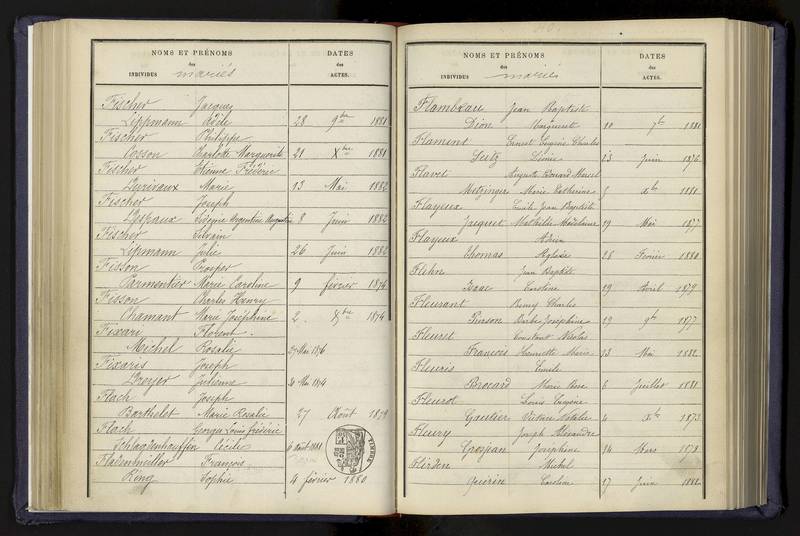 NOMS ET PRÉNOMS DATES
des des
INDIVIDUS mariés ACTES.
Fischer Jacques
Lippmann Adèle 28 9bre 1881
Fischer Philippe
Cosson Charlotte Marguerite 21 Xbre 1881
Fischer Etienne Frédéric
Durivaux Marie 13 Mai 1882
Fischer Joseph
Argentine Augustine 8 Juin 1882
Fischer Silvain
Lippmann Julie 26 Juin 1882
Fisson Prosper
Parmentier Marie Caroline 9 février 1874
Fisson Charles Henry
Chamant Marie Joséphine 2 Xbre 1874
Fixari Florent
Michel Rosalie 27 Mai 1876
Fixaris Joseph
Dreyer Julienne 30 Mai 1874
Flach Joseph
Barthelet Marie Rosalie 27 Août 1879
Flach Georges Louis Frédéric
Schlagdenhauffen Cécile 6 août 1881
François
Ring Sophie 4 février 1880
NOMS ET PRÉNOMS DATES
des des
INDIVIDUS mariés ACTES.
Flambeau Jean Baptiste
Dion Marguerite 10 7bre 1881
Flament Ernest Eugène Charles
Seitz 23 Juin 1876
Auguste Edouard Marcel
Metzinger Marie Catherine 5 Xbre 1881
Flayeux Emile Jean Baptiste
Jacquet Mathilde Madelaine 19 Mai 1877
Flayeux Adrien
Thomas Aglaée 26 Février 1880
Jean Baptiste
Isaac Caroline 19 Avril 1879
Fleurant Remy Charles
Pierson Barbe Joséphine 19 9bre 1877
Fleuret Constant Nicolas
François Henriette Marie 13 Mai 1882
Fleuris Emile
Brocard Marie Rose 6 Juillet 1881
Fleurot Louis Eugène
Gautier Victoire Natalie 4 Xbre 1873
Fleury Joseph Alexandre
Grosjean Joséphine 14 Mars 1878
Michel
Guérin Caroline 17 Juin 1882